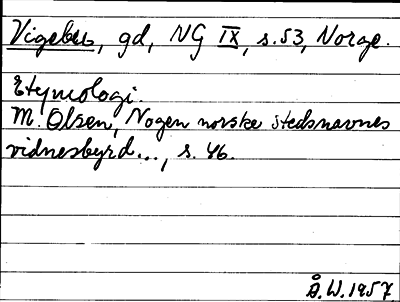 Vigebu, gd, NG IX, s.53, Norge.
Etymologi.
M. Olsen, Nogen norske stedsnavnes
vidnesbyrd..., s. 46.
Å.W.1957